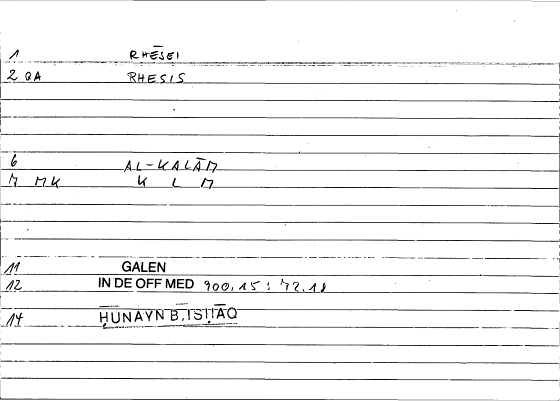 1 RHĒSEI
2 QA RHESIS
6 AL-KALĀM
M MK K L M
11 GALEN
12 IN DE OFF MED 900,15 : 72.18
14 ḤUNAYN B. ISḤĀQ